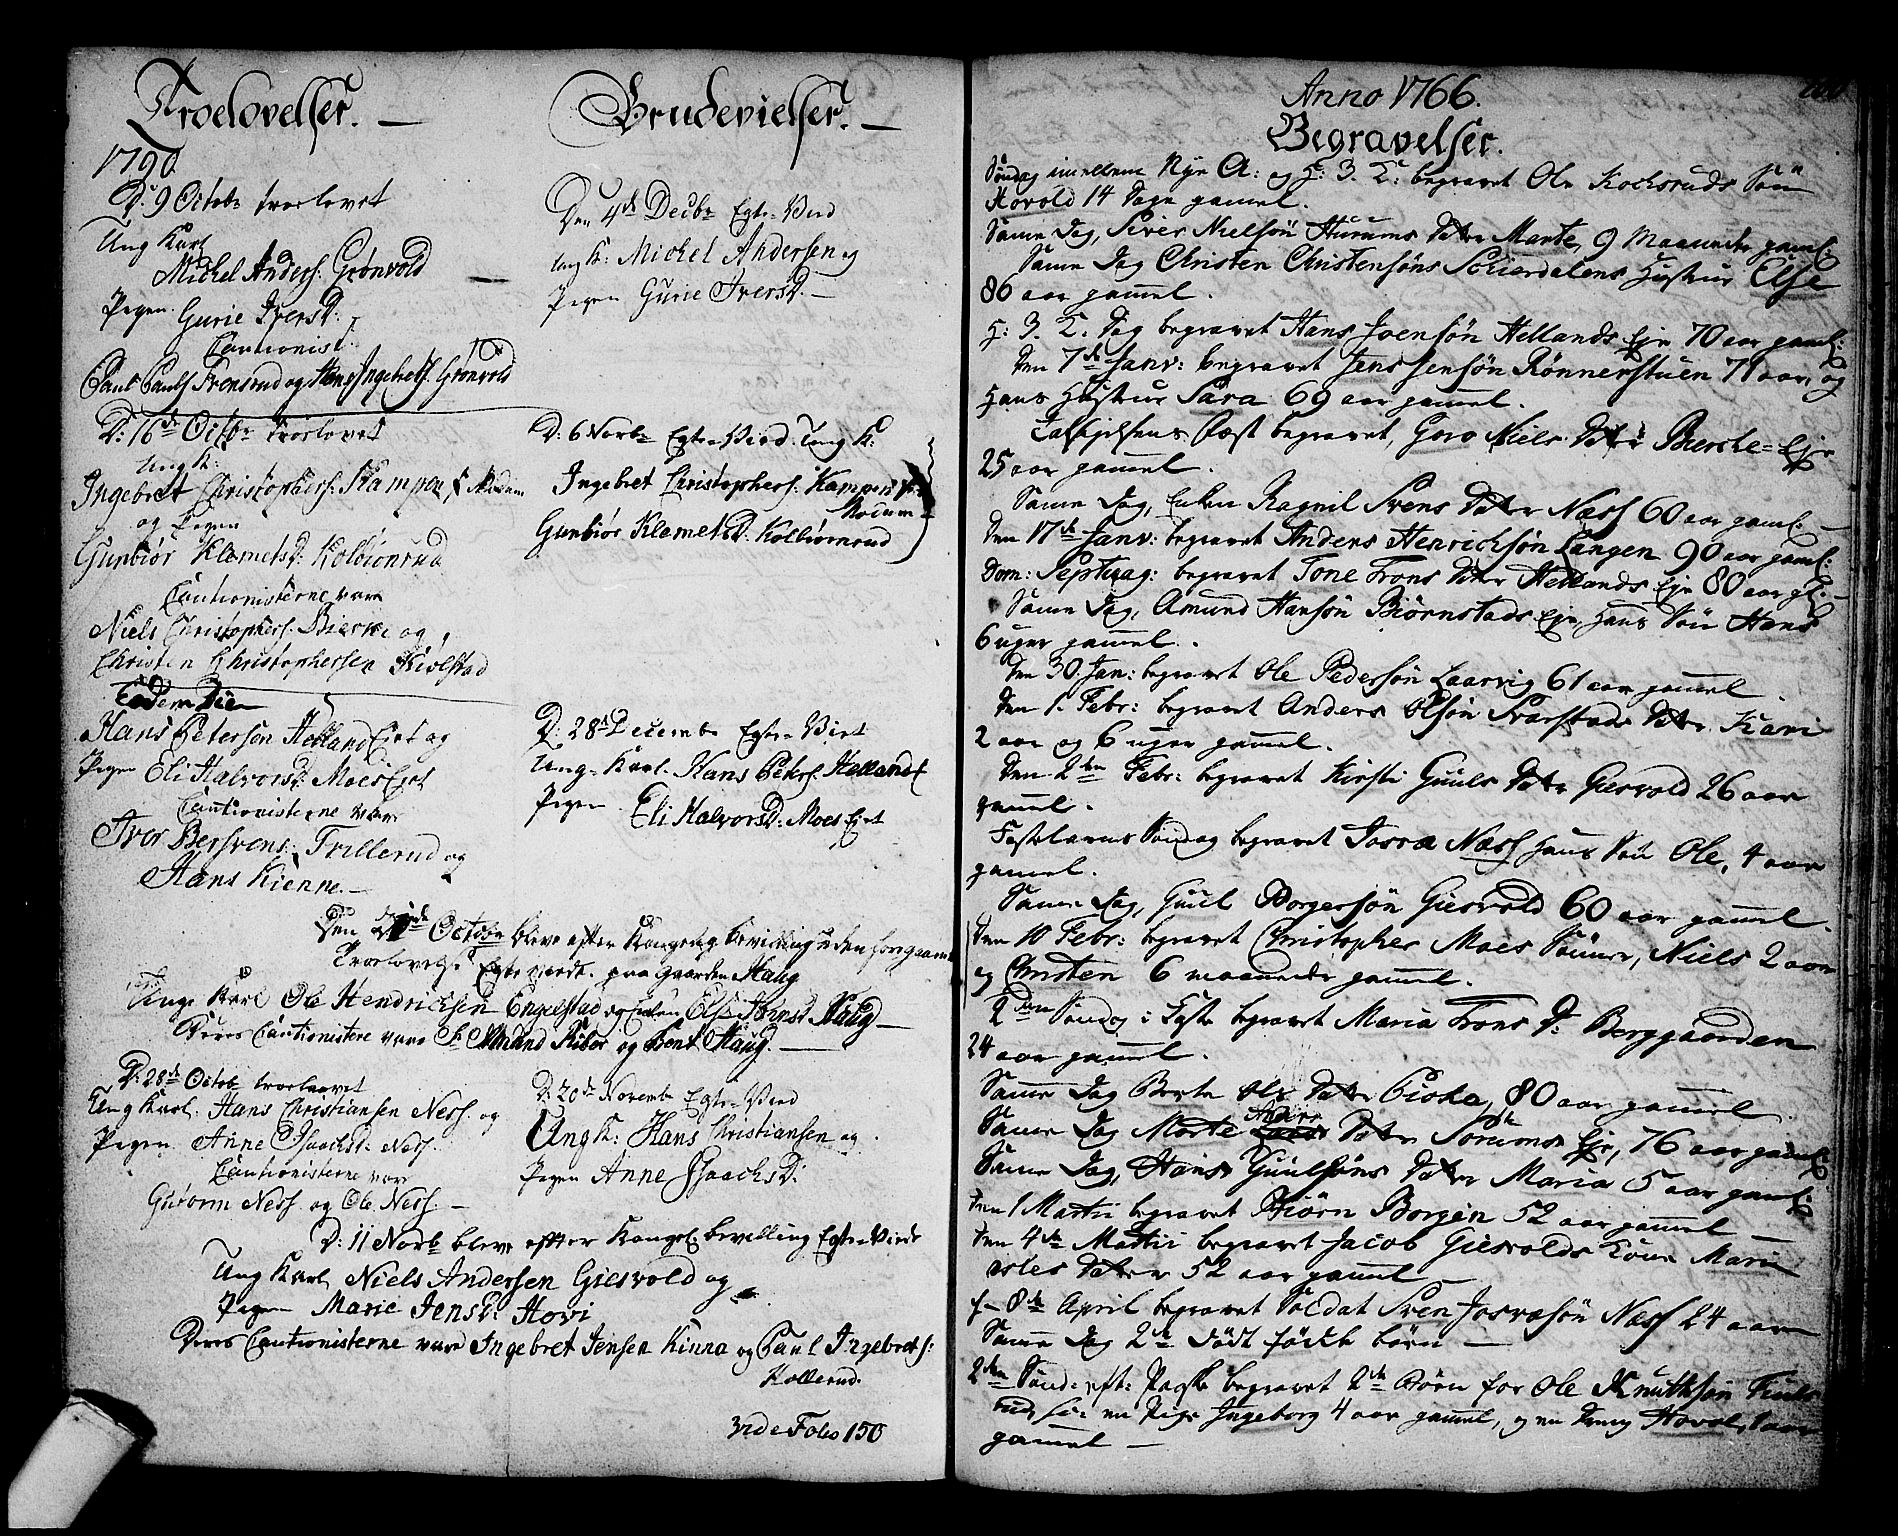 Troelovelser. —
1790
D: 9 Octobr troelovet
Ung Karl
Michel Anders: Grønvold
Pigen Gurie IversD.
Cautionist:
Paul Pauls Svensrud og Hans Ingebrets. Grønvold
D: 16de Octbr troelovet
Ung K:
Ingebret Christophers: Kampen, Modum
og Pigen
Gunbiør KlemetsD: Kolbiønrud
Cautionisterne vare
Niels Christophers. Bierke og
Christen Christophersen Kiølstad
Eodem Die
Hans Petersen Helland Eiet og
Pigen Eli HalvorsD: Moes Eiet
Cautionisterne vare
Iver Bersvens: Trillerud og
Hans Kienne. —
Brudevielser. —
Den 4de Decbr Egte-Viid
Ung K: Michel Andersen og
Pigen Gurie IversD. —
D: 6 Novbr Egte-Viid. Ung K:
Ingebret Christophers: Kampen
Modum
Gunbiør KlemetsD. Kolbiørnrud
D: 28d Decembr Egte-Viet
Ung-Karl. Hans Peters. Helland
Pigen Eli HalvorsD: Moes Eiet
Den October bleve efter Kongelig bevilling uden foregaaende
Troelovelse Egteviede paa Gaarden Haug
Unge Karl Ole Hendrichsen Engelstad og Enken Else Haug —
Deres Cautionistere vare Sr Amund Ribor og Bent Haug. —
D: 28de Octob troelovet
Ung Karl. Hans Christiansen Ness. og
Pigen Anne Isaachsd: Ness.
Cautionisterne var
Guttorm Ness og Ole Ness. —
D: 20de Novembr Egte-Viid
Ung K: Hans Christiansen og
Pigen Anne IsaachsD:
D: 11 Novb bleve efter Kongel: bevilling Egte-Viede
Ung Karl Niels Andersen Giesvold og
Pigen Marie JensD: Hovi
Deres Cautionisterne vare Ingebret Jensen Kinna og Paul Ingebrets:
Kollerud.
vide Folio 150
Anno 1766.
Begravelser.
Søndag imellem Nye A: og H: 3. K: begravet Ole Kochsruds Søn
Hovold 14 Dage gamel.
Samme Dag, Siver Nielsøn Hurums Dater Marte, 9 Maaneder gaml:
Samme Dag Christen Christensøns Schierdalens Hustrue Else
86 aar gammel.
H: 3. K. Dag begravet Hans Joensøn Hellands Eje 70 aar gaml:
Den 7de Janv: begravet Jens Jensøn Rønnerstuen 71 aar, og
Hans Hustrue Sara 69 aar gammel.
begravet, Goro Niels Dater Bierke-Eje
25 aar gammel.
Samme Dag, Enken Ragnil Svens Dater Næss 60 aar gaml: —
Den 17de Janv: begravet Anders Henrichsøn Langen 90 aar gaml:
Dom: Septuag: begravet Tone Trons Dater Hellands Eje 80 aar gl: —
Samme Dag, Amund Hansøn Biørnstads Eje, hans Søn Hans
6 uger gammel.
Den 30. Jan: begravet Ole Pedersøn Laarvig 61 aar gammel.
Den 1. Febr: begravet Anders Olsøn Svarstads Dater Kari
2 aar og 6 uger gammel.
Den 2den Febr: begravet Kirsti Guuls Dater Giesvold 26 aar
gammel.
Fastelavns Søndag begravet Josva Næss hans Søn Ole, 4 aar
gammel.
Samme Dag, Guul Borgersøn Giesvold 60 aar gammel.
Den 10 Febr: begravet Christopher Moes Sønner, Niels 2 aar
og Christen 6 maaneder gammel.
2den Søndag i Faste begravet Maria Trons D: Berggaarden
24 aar gammel.
Samme Dag Berte Ols Dater Piska, 80 aar gammel
Samme Dag Marte Anders Dater Sorums Eje, 76 aar gammel
Samme Dag, Hans Guulsøns Dater Maria 5 aar gaml:
Den 1 Martii begravet Biørn Borgen 52 aar gammel —
Den 4de Martii begravet Jacob Giesvolds Kone Marie
Dater 52 aar gammel —
d- 8de April begravet Soldat Sven Josvæsøn Næss 24 aar
Samme Dag 2de død fødte børn —
2den Sønd: eft: Paaske begravet 2de Børn for Ole Knuthsøn
en Pige Ingeborg 4 aar gammel, og en Dreng Hovol, 1 aar
gammel —